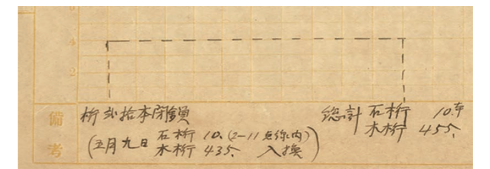 備考
桁弐拾本閉鎖
(五月九日 石桁 10. (2-11 点線内)
木桁 435. 入換)
総計 石桁 10.本
木桁 455.